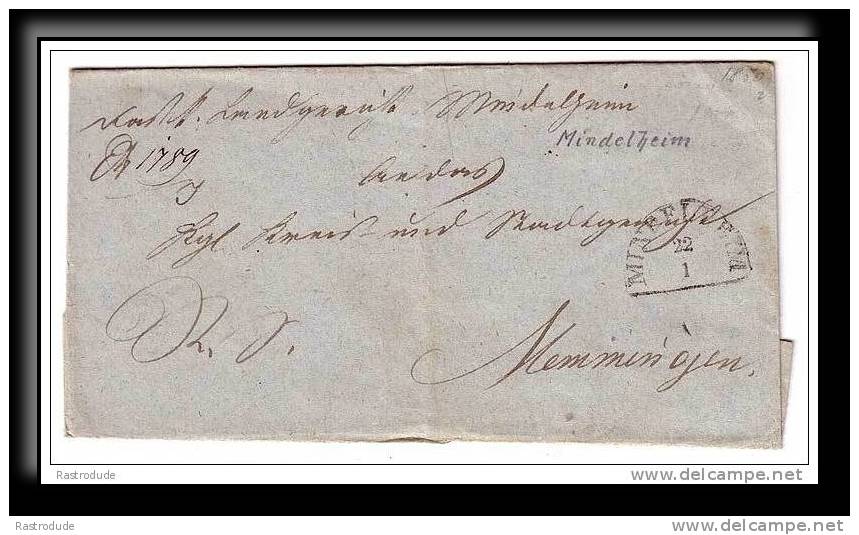 1850
Landgericht Mindelheim
Mindelheim
No 1789
An das
Kgl Kreis und Stadtgericht
MINDELHEIM
22
1
R. S.
Memmingen.
Rastrodude
www.delcampe.net
Rastrodude
www.delcampe.net